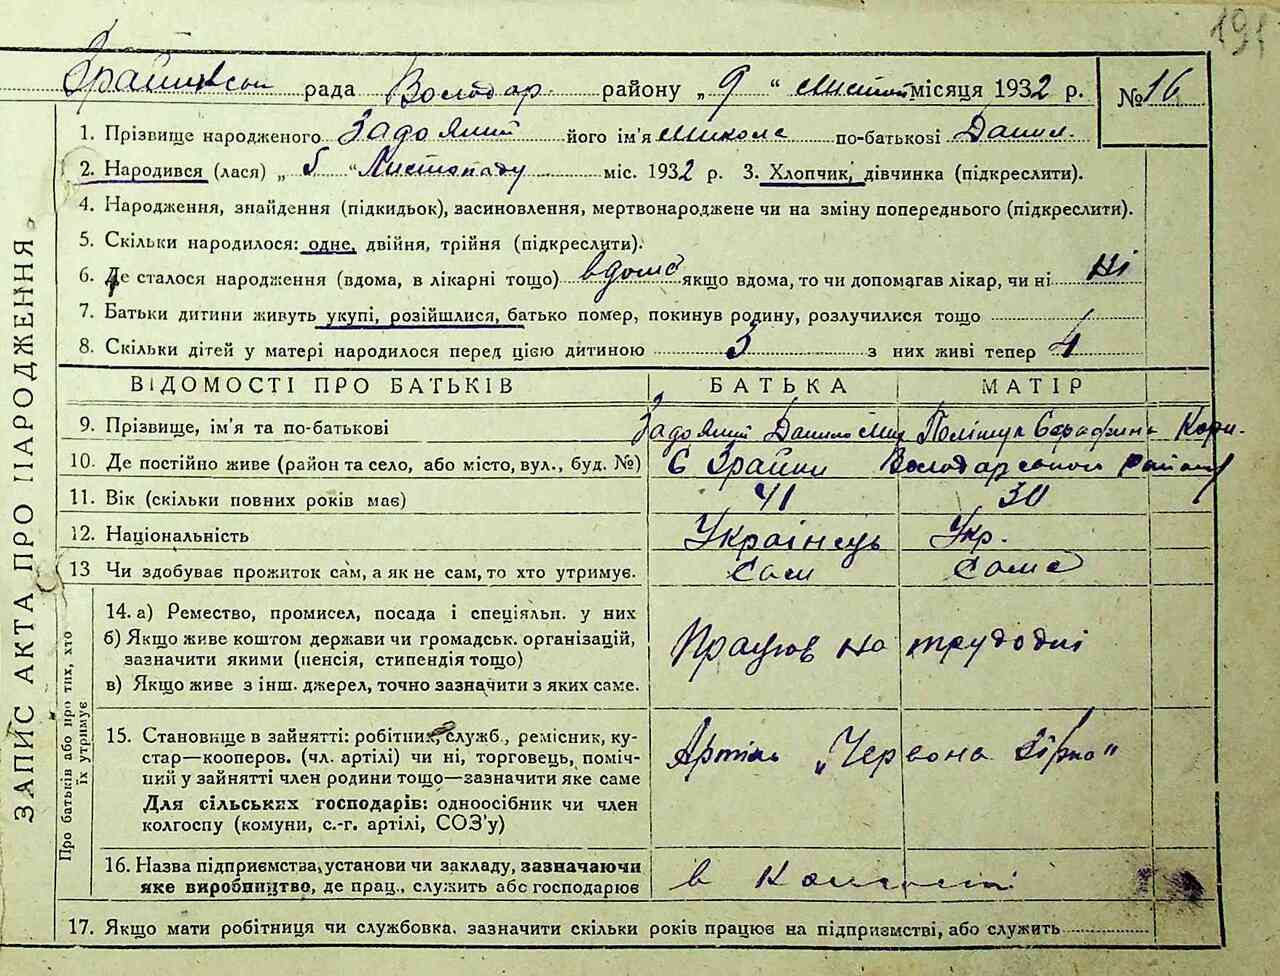 191
Зрайківськ рада Володар. району „9“ листоп місяця 1932 р. №16
1. Прізвище народженого Задояний його ім'я Микола по-батькові Данил.
2. Народився (лася) „5“ Листопаду міс. 1932 р. 3. Хлопчик, дівчинка (підкреслити).
4. Народження, знайдення (підкидьок), засиновлення, мертвонароджене чи на зміну попереднього (підкреслити).
5. Скільки народилося: одне, двійня, трійня (підкреслити).
6. Де сталося народження (вдома, в лікарні тощо) вдома якщо вдома, то чи допомагав лікар, чи ні ні
7. Батьки дитини живуть укупі, розійшлися, батько помер, покинув родину, розлучилися тощо
8. Скільки дітей у матері народилося перед цією дитиною 3 з них живі тепер 4
ЗАПИС АКТА ПРО НАРОДЖЕННЯ
ВІДОМОСТІ ПРО БАТЬКІВ БАТЬКА МАТІР
9. Прізвище, ім'я та по-батькові Задояний Данило Мих Поліщук Серафина Корн.
10. Де постійно живе (район та село, або місто, вул., буд. №) С Зрайки Володарського району
11. Вік (скільки повних років має) 41 30
12. Національність Українець Укр.
13 Чи здобуває прожиток сам, а як не сам, то хто утримує. Сам Сама
Про батьків або про тих, хто їх утримує
14. а) Ремество, промисел, посада і спеціяльн. у них
б) Якщо живе коштом держави чи громадськ. організацій,
зазначити якими (пенсія, стипендія тощо)
Працює на трудодні
в) Якщо живе з інш. джерел, точно зазначити з яких саме.
15. Становище в зайнятті: робітник, служб., ремісник, ку-
стар—кооперов. (чл. артілі) чи ні, торговець, поміч-
Артіль „Червона Зірка“
ний у зайнятті член родини тощо—зазначити яке саме
Для сільських господарів: одноосібник чи член
колгоспу (комуни, с.-г. артілі, СОЗ'у)
16. Назва підприємства, установи чи закладу, зазначаючи
яке виробництво, де прац., служить або господарює в
17. Якщо мати робітниця чи службовка. зазначити скільки років працює на підприємстві, або служить